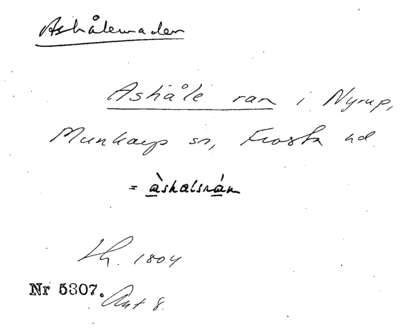 Ashålemaden
Ashåle ran i Nyrup,
Munkarp sn, Frosta hd
= àskalsrán
Lh. 1804
Nr 5307. Ant 8.